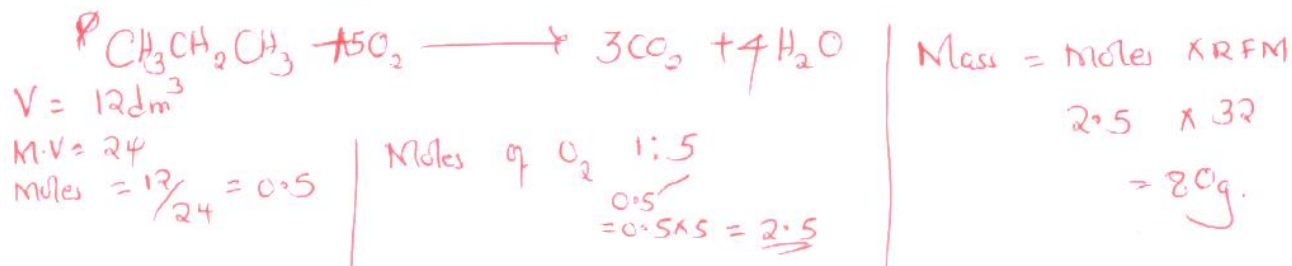 CH₃CH₂CH₃ + 5O₂ ⟶ 3CO₂ + 4H₂O
V = 12dm³
M.V = 24
Moles = 12/24 = 0.5
Moles of O₂ 1:5
0.5
= 0.5 x 5 = 2.5
Mass = Moles x RFM
2.5 x 32
= 80g.